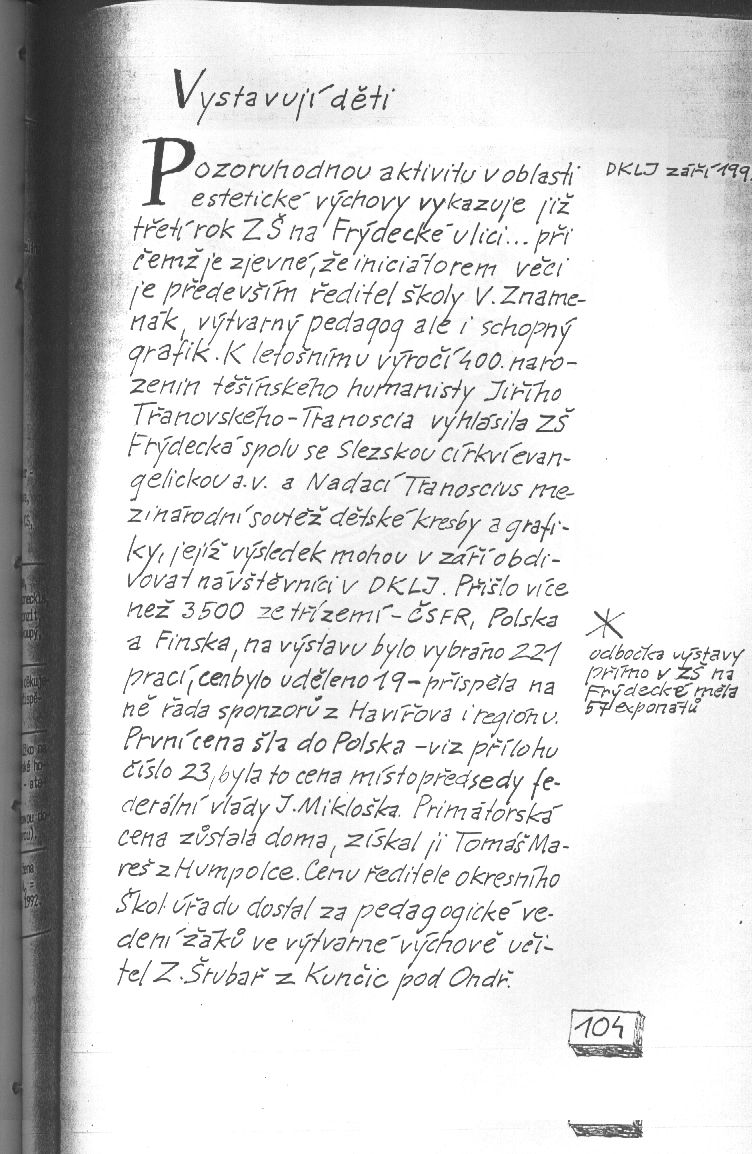 Vystavující děti
Pozoruhodnou aktivitu v oblasti
estetické výchovy vykazuje již
třetí rok ZŠ na Frýdecké ulici... při
čemž je zjevné, že iniciátorem věci
je především ředitel školy V. Zname-
nák, výtvarný pedagog ale i schopný
grafik. K letošnímu výročí 400. naro-
zenin těšínského humanisty Jiřího
Třanovského-Tranoscia vyhlásila ZŠ
Frýdecká spolu se Slezskou církví evan-
gelickou a.v. a Nadací Tranoscius me-
zinárodní soutěž dětské kresby a grafi-
ky, jejíž výsledek mohou v září obdi-
vovat návštěvníci v DKLJ. Přišlo více
než 3500 ze tří zemí - ČSFR, Polska
a Finska, na výstavu bylo vybráno 221
prací, cen bylo uděleno 19 - přispěla na
ně řada sponzorů z Havířova i regionu.
První cena šla do Polska - viz přílohu
číslo 23, byla to cena místopředsedy fe-
derální vlády J. Mikloška. Primátorská
cena zůstala doma, získal ji Tomáš Ma-
reš z Humpolce. Cenu ředitele okresního
Škol úřadu dostal za pedagogické ve-
dení žáků ve výtvarné výchově uči-
tel Z. Šrubař z Kunčic pod Ondř.
DKLJ září 199
odbočka výstavy
přímo v ZŠ na
Frýdecké měla
57 exponátů
104